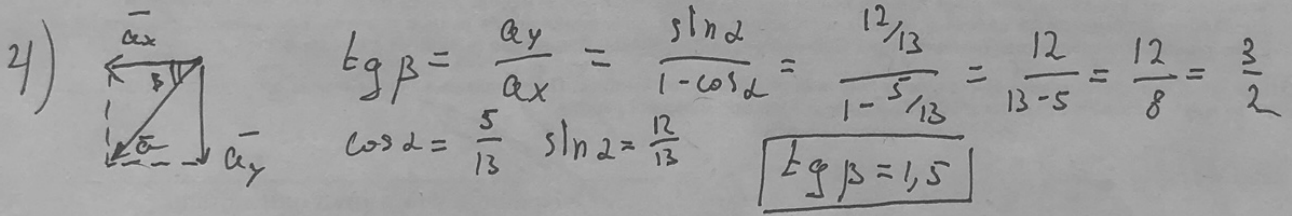 4) a̅x β a̅ a̅y
tg β = ay/ax = sinα/(1-cosα) = (12/13)/(1-5/13) = 12/(13-5) = 12/8 = 3/2
cosα = 5/13 sinα = 12/13
tg β = 1,5